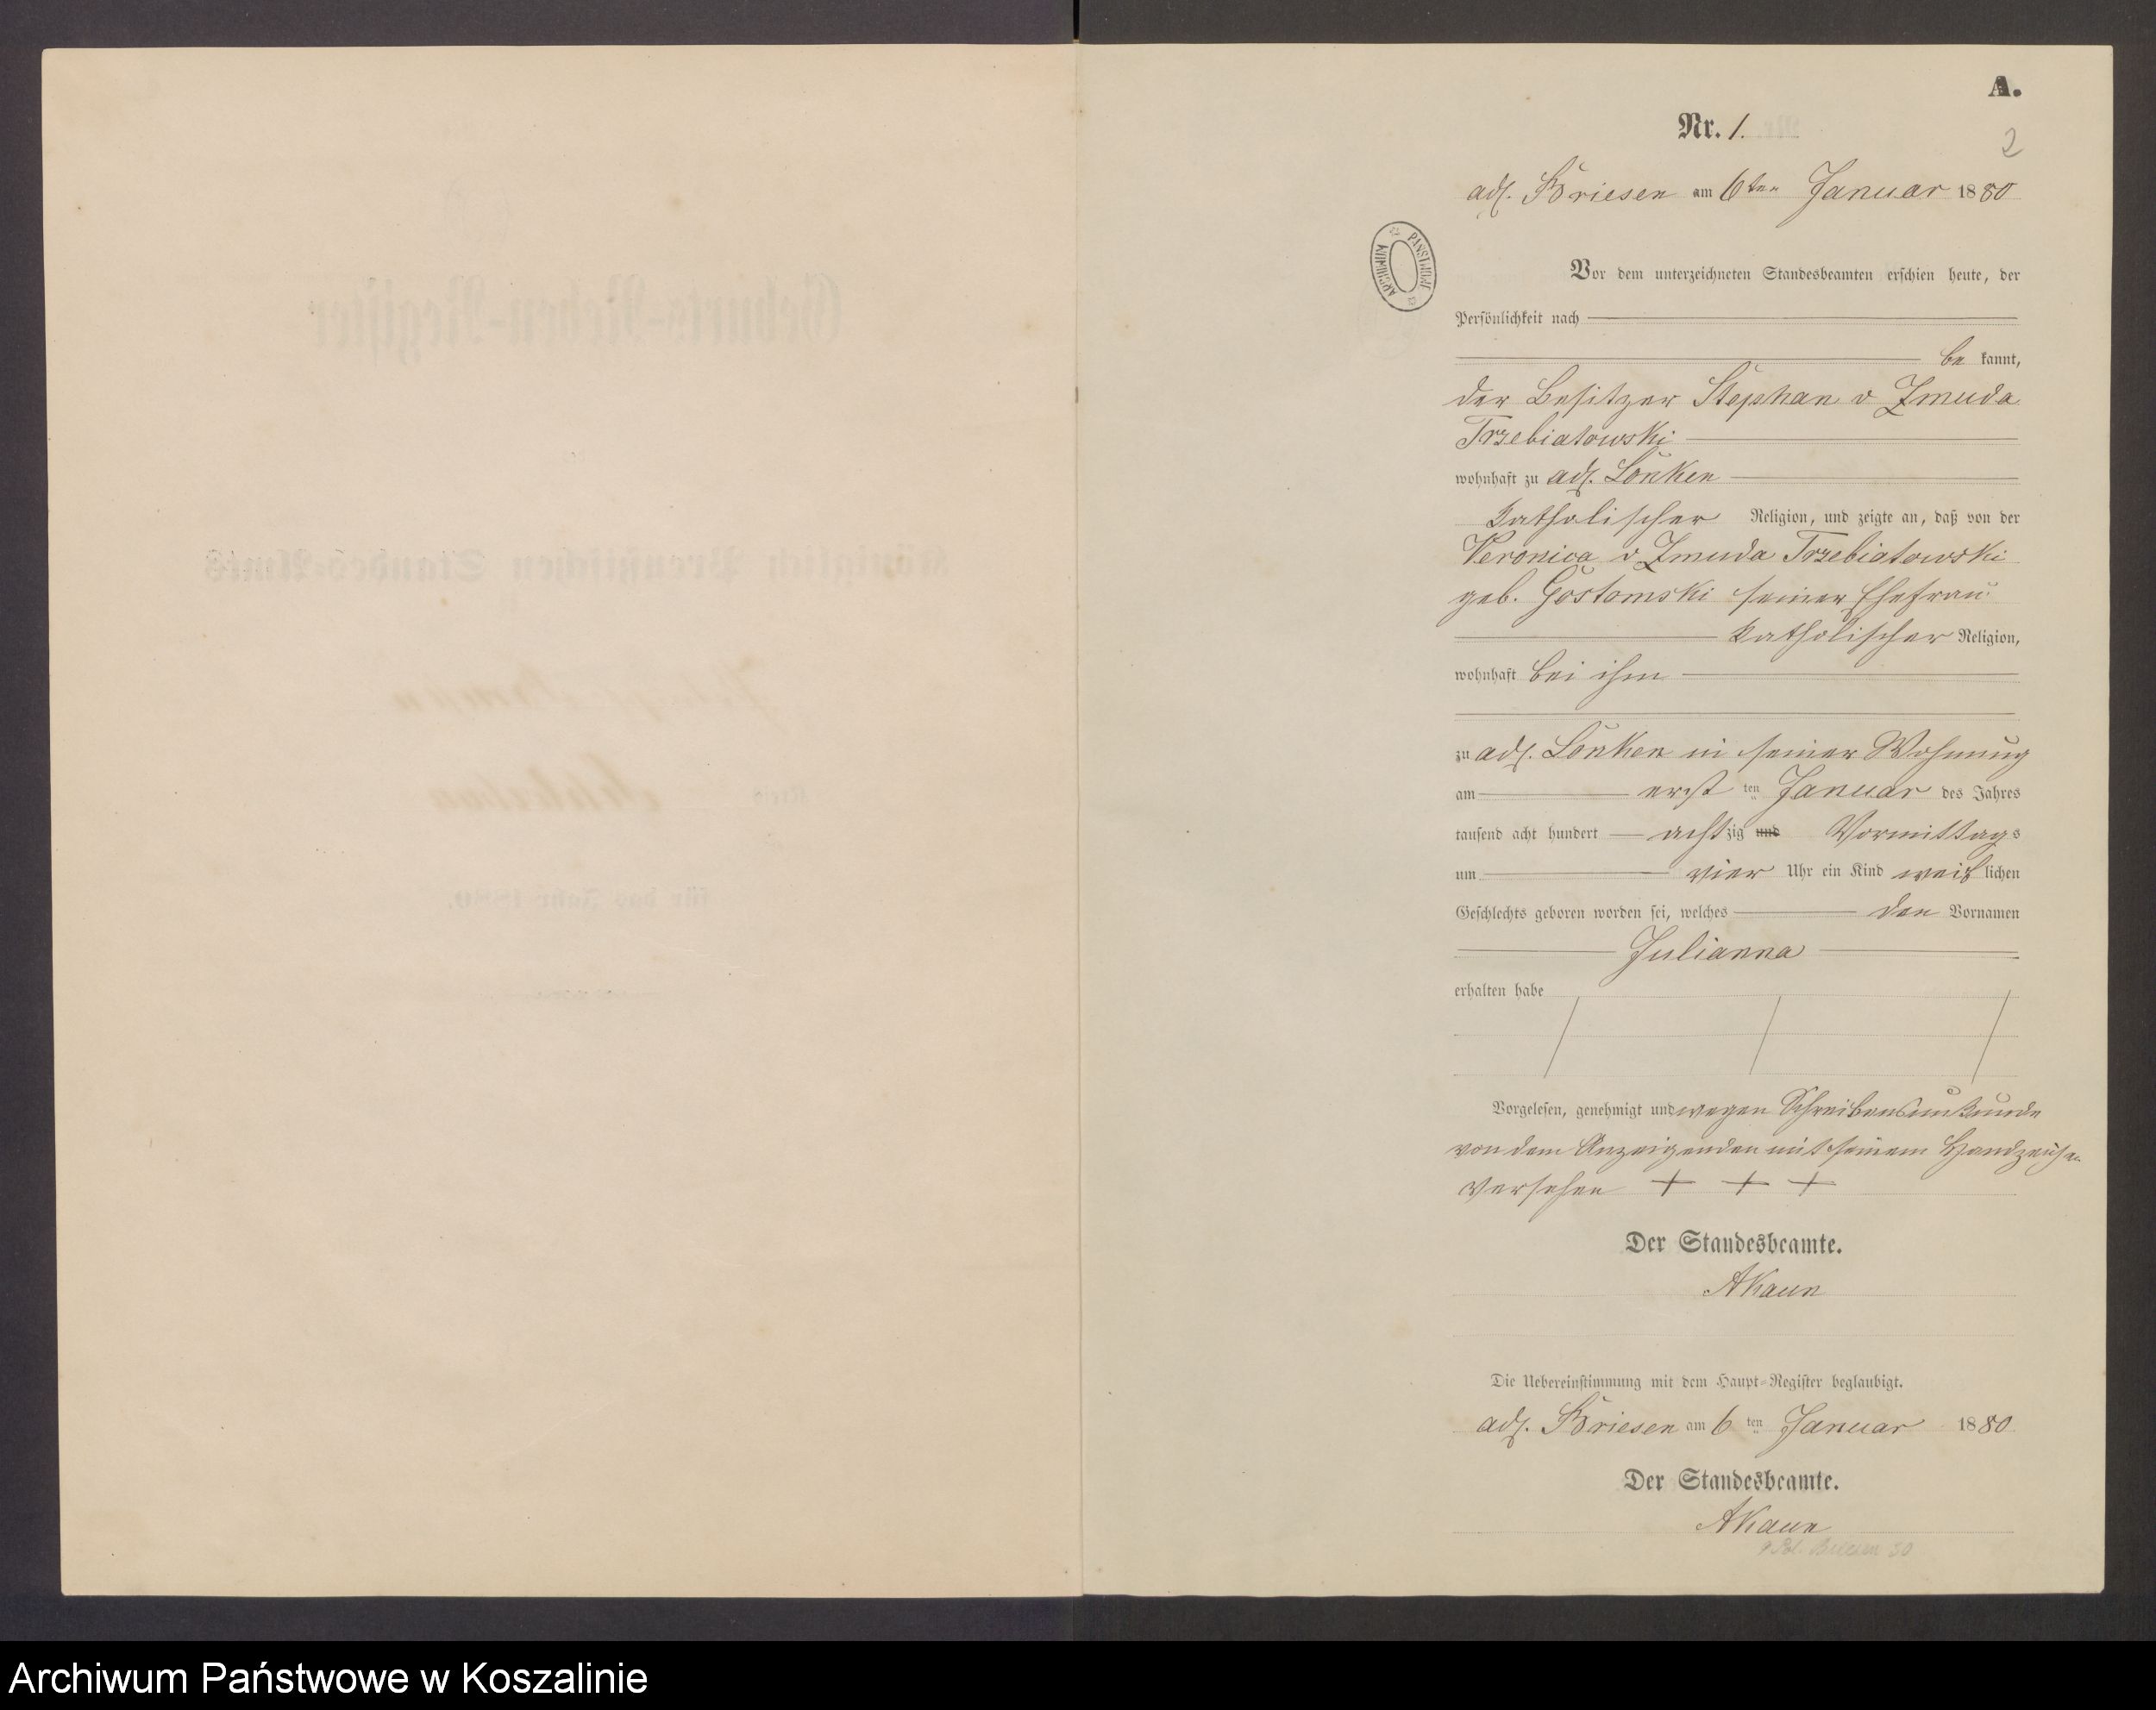 A.
Nr. 1.
2
adl. Briesen am 6ten Januar 1880
ARCHIWUM PAŃSTWOWE
Vor dem unterzeichneten Standesbeamten erschien heute, der
Persönlichkeit nach
be kannt,
der Besitzer Stephan v Zmuda
Trzebiatowski
wohnhaft zu adl. Lonken
katholischer Religion, und zeigte an, daß von der
Veronica v Zmuda Trzebiatowski
geb. Gostomski seiner Ehefrau
katholischer Religion,
wohnhaft bei ihm
zu adl. Lonken in seiner Wohnung
am erst ten Januar des Jahres
tausend acht hundert achtzig und Vormittags
um vier Uhr ein Kind weiblichen
Geschlechts geboren worden sei, welches den Vornamen
Julianna
erhalten habe
Vorgelesen, genehmigt und wegen Schreibensunkunde
von dem Anzeigenden mit seinem Handzeichen
versehen + + +
Der Standesbeamte.
AKaun
Die Uebereinstimmung mit dem Haupt-Register beglaubigt.
adl. Briesen am 6 ten Januar 1880
Der Standesbeamte.
AKaun
Archiwum Państwowe w Koszalinie